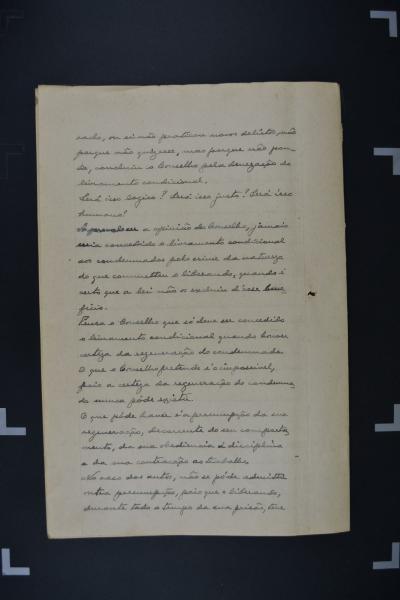 rado, ou si não praticou novos delictos, não
porque não quizesse, mas porque não pou-
de, concluiu o Conselho pela denegação do
livramento condicional.
Será isso logico? Será isso justo? Será isso
humano?
A prevalecer a opinião do Conselho, jamais
seria concedido o livramento condicional
aos condemnados pelo crime da natureza
do que commetteu o liberando, quando é
certo que a lei não os excluiu d'esse bene-
ficio.
Pensa o Conselho que só deve ser concedido
o livramento condicional quando houver
certeza da regeneração do condemnado.
O que o Conselho pretende é o impossivel,
pois a certeza da regeneração do condemna-
do nunca póde existir.
O que póde haver é a presumpção da sua
regeneração, decorrente do seu comporta-
mento, da sua obediencia á disciplina
e da sua contracção ao trabalho.
No caso dos autos, não se póde admittir
outra presumpção, pois que o liberando,
durante todo o tempo da sua prisão, teve